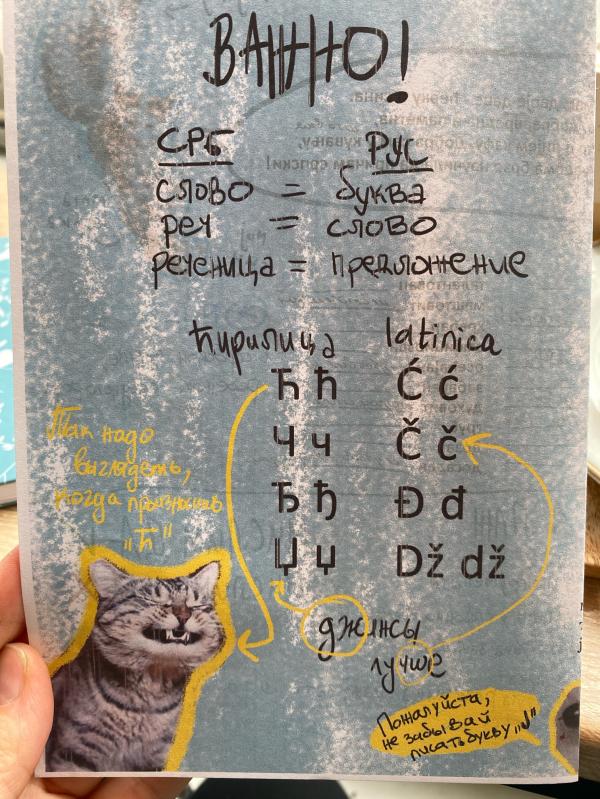 ВАЖНО!
СРБ РУС
слово = буква
реч = слово
реченица = предложение
ћирилица latinica
Ћ ћ Ć ć
Ч ч Č č
Ђ ђ Đ đ
Џ џ Dž dž
Так надо
выглядеть,
когда произносишь
"Ћ"
джинсы
лучше
Пожалуйста,
не забывай
писать букву "J"